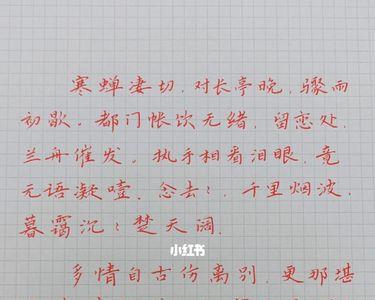 寒蝉凄切，对长亭晚，骤雨
初歇。都门帐饮无绪，留恋处，
兰舟催发。执手相看泪眼，竟
无语凝噎，念去去，千里烟波，
暮霭沉沉楚天阔。
小红书
多情自古伤离别，更那堪